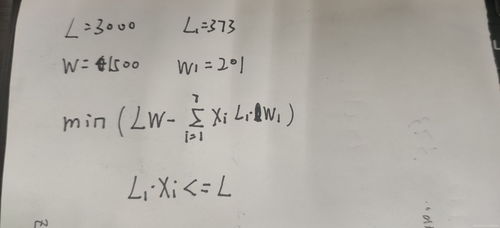 L=3000 L₁=373
W=1500 W₁=201
min (LW- 7∑i=1 Xi L₁·W₁)
L₁·Xi<=L